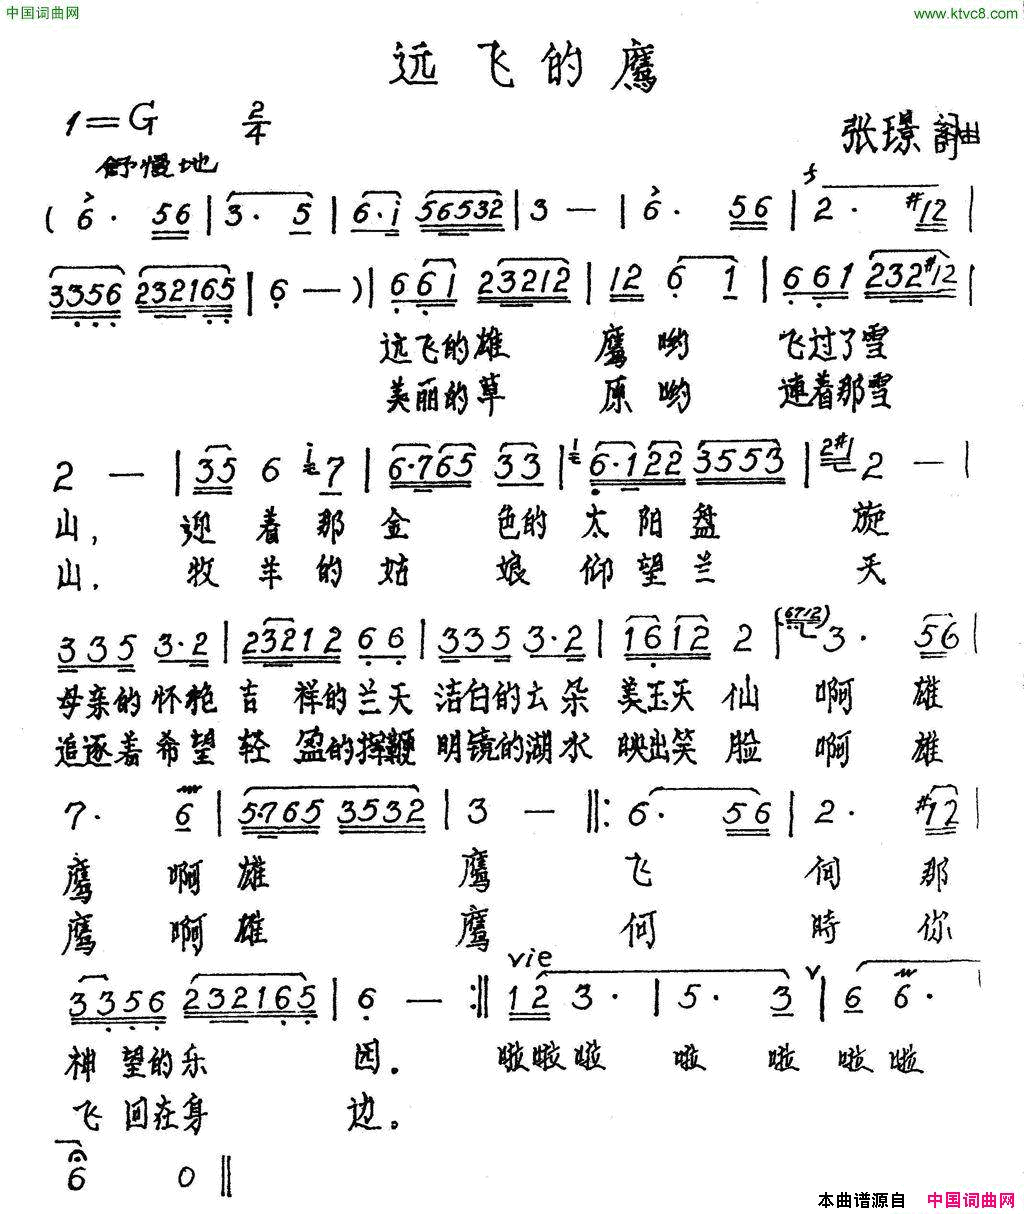 中国词曲网
www.ktvc8.com
远飞的鹰
1=G 2/4
张璟 詞曲
舒慢地
( 6· 56 | 3· 5 | 6·i 56532 | 3 — | 6· 56 | 2· #12 |
3356 232165 | 6 — ) | 661 23212 | 12 6 1 | 661 232#12 |
远飞的雄 鹰哟 飞过了雪
美丽的草 原哟 連着那雪
2 — | 35 6 7 | 6·765 33 | 6·122 3553 | 2 — |
山, 迎着那金 色的太阳盘 旋
山. 牧羊的姑 娘仰望兰 天
335 3·2 | 23212 66 | 335 3·2 | 1612 2 | 3· 56 |
母亲的怀抱 吉祥的兰天 洁白的云朵 美玉天仙 啊雄
追逐着希望 轻盈的挥鞭 明镜的湖水 映出笑脸 啊雄
7· 6 | 5·765 3532 | 3 — ‖: 6· 56 | 2· #12 |
鹰 啊雄 鹰 飞 向那
鹰 啊雄 鹰 何 時你
vie
3356 232165 | 6 — :‖ 12 3· | 5· 3 | 6 6·
神望的乐 园. 啦啦啦 啦 啦 啦啦
飞回在身 边.
6 0 ‖
本曲谱源自 中国词曲网